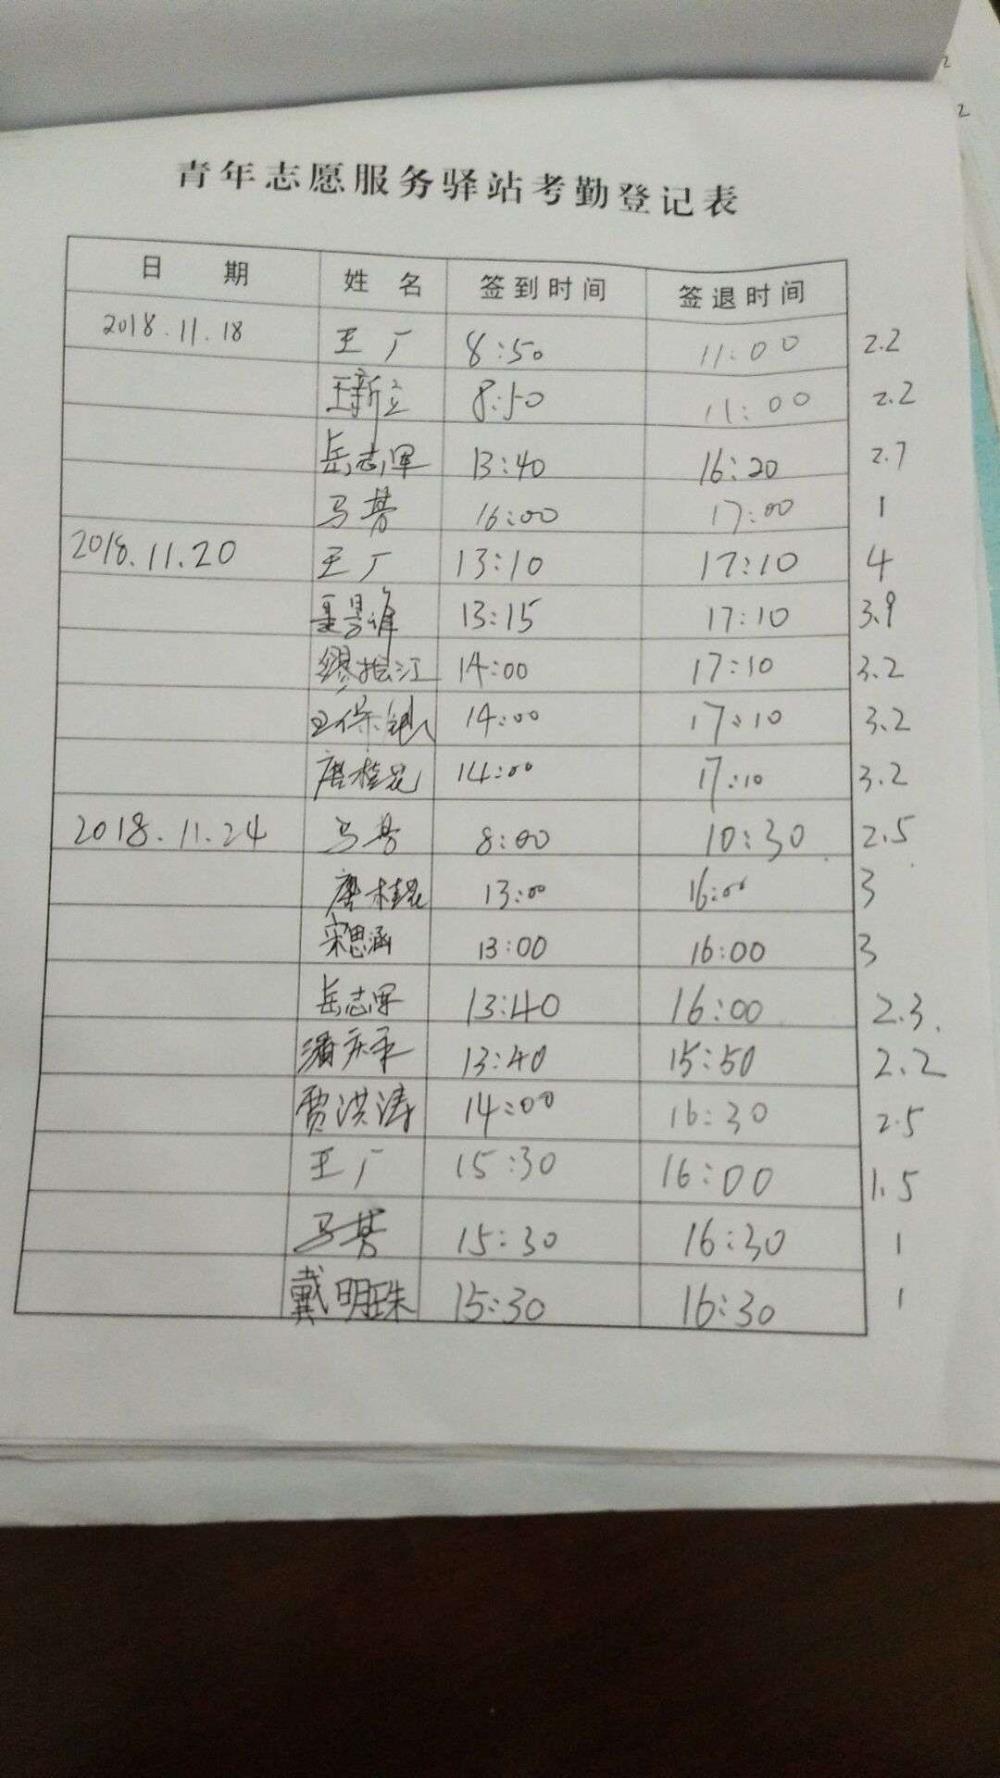 青年志愿服务驿站考勤登记表
日 期 姓 名 签到时间 签退时间
2018.11.18 王广 8:50 11:00 2.2
王新立 8:50 11:00 2.2
岳志军 13:40 16:20 2.7
马 16:00 17:00 1
2018.11.20 王广 13:10 17:10 4
13:15 17:10 3.9
缪 江 14:00 17:10 3.2
王保银 14:00 17:10 3.2
唐桂昆 14:00 17:10 3.2
2018.11.24 马 8:00 10:30 2.5
唐桂昆 13:00 16:00 3
宋思涵 13:00 16:00 3
岳志军 13:40 16:00 2.3.
潘庆平 13:40 15:50 2.2
贾洪涛 14:00 16:30 2.5
王广 15:30 16:00 1.5
马 15:30 16:30 1
戴明珠 15:30 16:30 1
2
2